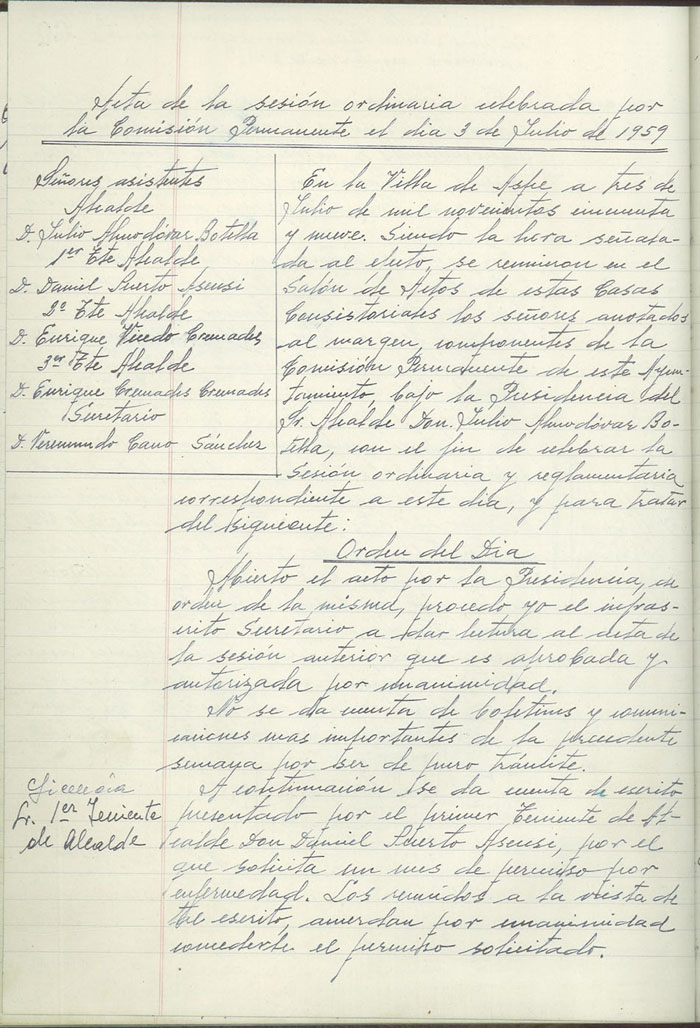 Acta de la sesión ordinaria celebrada por
la Comisión Permanente el dia 3 de Julio de 1959
Señores asistentes
Alcalde
D. Julio Almodóvar Botella
1er Tte Alcalde
D. Daniel Puerto Asensi
2º Tte Alcalde
D. Enrique Vicedo Cremades
3er Tte Alcalde
D. Enrique Cremades Cremades
Secretario
D. Veremundo Cano Sánchez
En la Villa de Aspe, a tres de
Julio de mil novecientos cincuenta
y nueve. Siendo la hora señala-
da al efecto, se reunieron en el
Salón de Actos de estas Casas
Consistoriales los señores anotados
al margen, componentes de la
Comisión Permanente de este Ayun-
tamiento, bajo la Presidencia del
Sr. Alcalde Don Julio Almodóvar Bo-
tella, con el fin de celebrar la
Sesión ordinaria y reglamentaria
correspondiente a este dia, y para tratar
del siguiente:
Orden del Dia
Abierto el acto por la Presidencia, de
orden de la misma, procedo yo el infras-
crito Secretario a dar lectura al acta de
la sesión anterior que es aprobada y
autorizada por unanimidad.
No se da cuenta de Boletines y comuni-
caciones mas importantes de la precedente
semana por ser de puro trámite.
Licencia
Sr. 1er Teniente
de Alcalde
A continuación se da cuenta de escrito
presentado por el primer Teniente de Al-
calde Don Daniel Puerto Asensi, por el
que solicita un mes de permiso por
enfermedad. Los reunidos a la vista de
tal escrito, acuerdan por unanimidad
concederle el permiso solicitado.